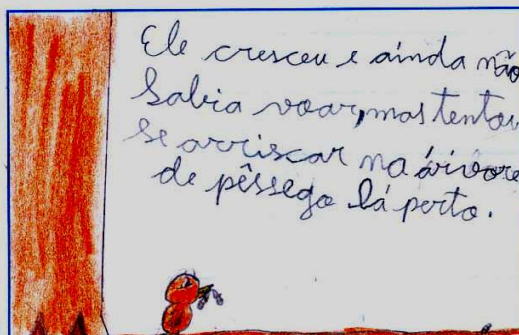 Ele cresceu e ainda não
sabia voar, mas tentou
se arriscar na árvore
de pêssego lá perto.